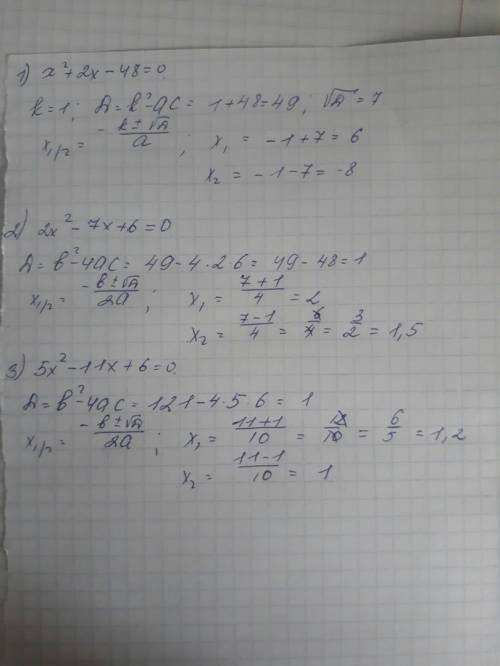 1) x²+2x-48=0
k=1; D=k²-ac= 1+48=49; √D=7
x₁,₂= -k±√D/a ; x₁ = -1+7=6
x₂ = -1-7=-8
2) 2x²-7x+6=0
D=b²-4ac= 49-4·2·6= 49-48=1
x₁,₂= -b±√D/2a ; x₁= 7+1/4 =2
x₂= 7-1/4 = 6/4 = 3/2 = 1,5
3) 5x²-11x+6=0.
D=b²-4ac=121-4·5·6= 1
x₁,₂= -b±√D/2a ; x₁= 11+1/10 = 12/10 = 6/5 = 1,2
x₂= 11-1/10 = 1